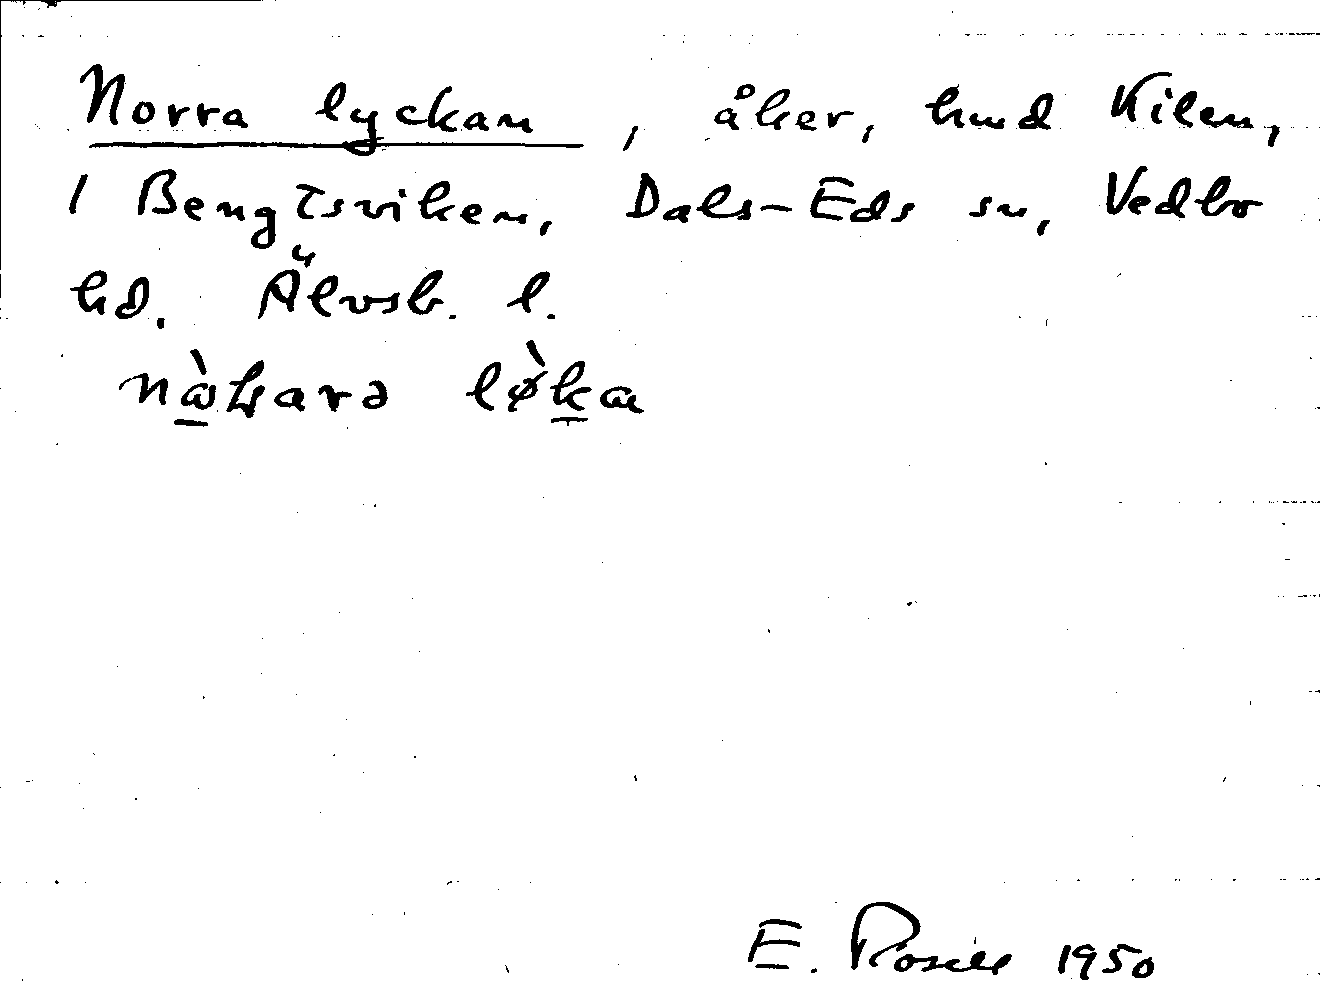 Norra lyckan, åker, hmd Kilen,
1 Bengtsviken, Dals-Eds sn, Vedbo
hd. Älvsb. l.
E. Rosell 1950